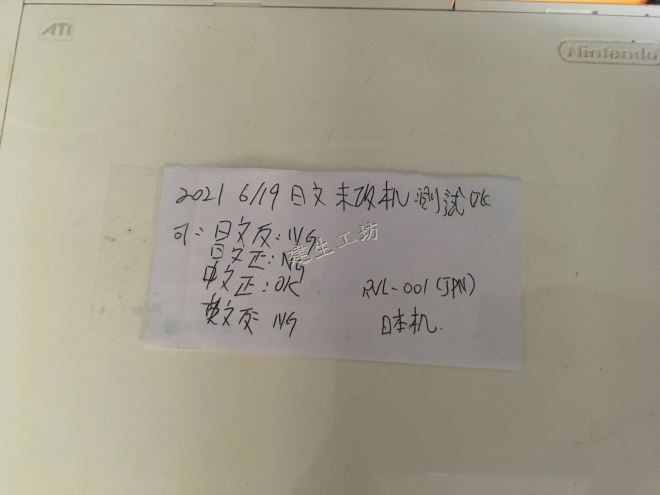 ATI
Nintendo
2021 6/19 日文未改机测试OK
可：日文反：NG
日文正：NG
中文正：OK
英文反：NG
RVL-001(JPN)
日本机.
生工坊